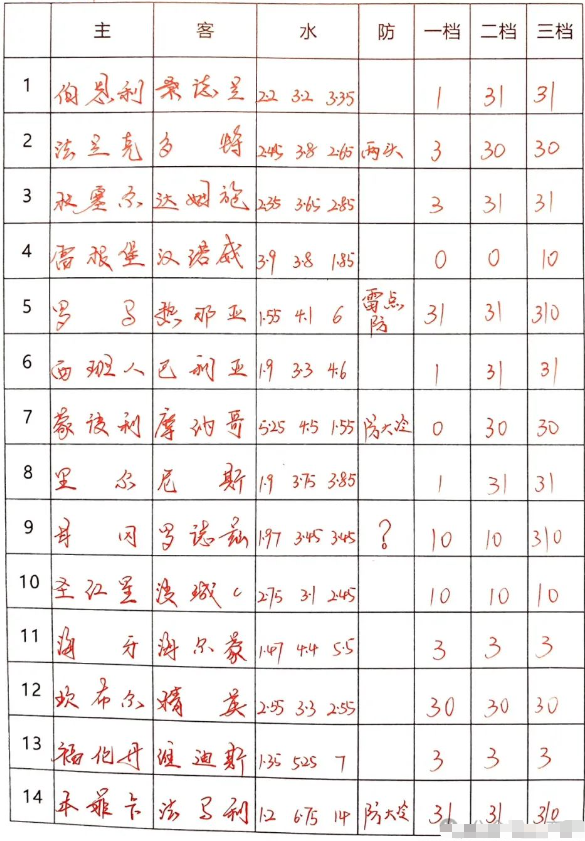 主 客 水 防 一档 二档 三档
1 伯恩利 桑德兰 2.2 3.2 3.35 1 31 31
2 法兰克 多特 2.45 3.8 2.65 两头 3 30 30
3 杜塞尔 达姆施 2.35 3.65 2.85 3 31 31
4 雷根堡 汉诺威 3.9 3.8 1.85 0 0 10
5 罗马 热那亚 1.55 4.1 6 雷点防 31 31 310
6 西班人 巴利亚 1.9 3.3 4.6 1 31 31
7 蒙彼利 摩纳哥 5.25 4.5 1.55 防大冷 0 30 30
8 里尔 尼斯 1.9 3.75 3.85 1 31 31
9 甘冈 罗德兹 1.97 3.45 3.45 ? 10 10 310
10 圣红星 波城 2.75 3.1 2.45 10 10 10
11 海牙 海尔蒙 1.47 4.4 5.5 3 3 3
12 坎布尔 精英 2.55 3.3 2.55 30 30 30
13 福伦丹 维迪斯 1.35 5.25 7 3 3 3
14 本菲卡 法马利 1.2 6.75 14 防大冷 31 31 310